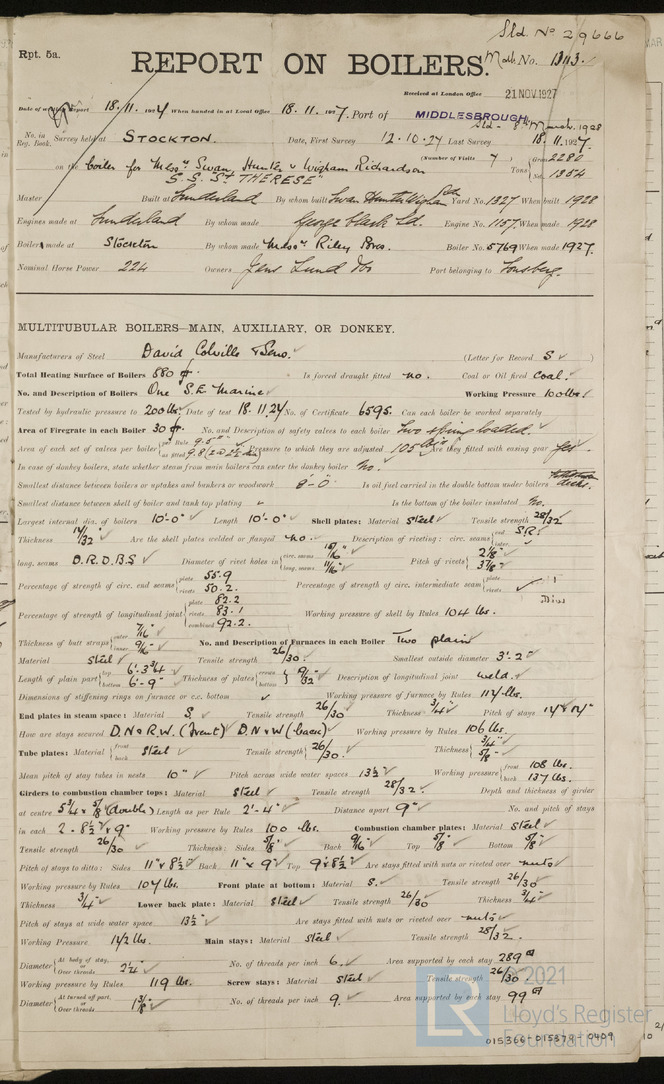 Sld. No 29666
Rpt. 5a.
REPORT ON BOILERS.
Mdb. No. 13113.
Received at London Office 21 NOV 1927
Date of writing Report 18.11.1927 When handed in at Local Office 18.11.1927. Port of MIDDLESBROUGH
Sld - 8th March. 1928
No. in Reg. Book. Survey held at STOCKTON. Date, First Survey 12.10.27 Last Survey 18.11.1927.
(Number of Visits 7) Tons Gross 2280 Net 1354
on the boiler for Messrs Swan, Hunter & Wigham Richardson
S.S. "St THERESE"
Master Built at Sunderland By whom built Swan Hunter Wigham Ltd Yard No. 1327 When built 1928
Engines made at Sunderland By whom made George Clark Ld. Engine No. 1157. When made 1928
Boilers made at Stockton By whom made Messrs Riley Bros. Boiler No. 5769 When made 1927.
Nominal Horse Power 224 Owners Jens Lund & Co Port belonging to Tonsberg.
MULTITUBULAR BOILERS—MAIN, AUXILIARY, OR DONKEY.
Manufacturers of Steel David Colville & Sons. (Letter for Record S)
Total Heating Surface of Boilers 880 sq. ft. Is forced draught fitted no. Coal or Oil fired Coal.
No. and Description of Boilers One S.E. Marine Working Pressure 100 lbs.
Tested by hydraulic pressure to 200 lbs. Date of test 18.11.27 No. of Certificate 6595. Can each boiler be worked separately
Area of Firegrate in each Boiler 30 sq. ft. No. and Description of safety valves to each boiler Two spring loaded.
Area of each set of valves per boiler per Rule 9.5 as fitted 9.8 Pressure to which they are adjusted 105 lbs Are they fitted with easing gear yes.
In case of donkey boilers, state whether steam from main boilers can enter the donkey boiler No.
Smallest distance between boilers or uptakes and bunkers or woodwork 8'-0" Is oil fuel carried in the double bottom under boilers
Smallest distance between shell of boiler and tank top plating Is the bottom of the boiler insulated No.
Largest internal dia. of boilers 10'-0" Length 10'-0" Shell plates: Material Steel Tensile strength 28/32
Thickness Are the shell plates welded or flanged no. Description of riveting: circ. seams end S.R. inter.
long. seams D.R.D.B.S Diameter of rivet holes in circ. seams 15/16" long. seams 11/16" Pitch of rivets 2 1/8" 3 7/8"
Percentage of strength of circ. end seams plate 55.9 rivets 50.2. Percentage of strength of circ. intermediate seam plate rivets
Percentage of strength of longitudinal joint plate 82.2 rivets 83.1 combined 92.2. Working pressure of shell by Rules 104 lbs.
Thickness of butt straps outer 7/16" inner 9/16" No. and Description of Furnaces in each Boiler Two plain
Material Steel Tensile strength 26/30. Smallest outside diameter 3'-2"
Length of plain part top 6'-3 3/4" bottom 6'-9" Thickness of plates crown bottom Description of longitudinal joint weld.
Dimensions of stiffening rings on furnace or c.c. bottom Working pressure of furnace by Rules 114 lbs.
End plates in steam space: Material S. Tensile strength 26/30 Thickness 3/4" Pitch of stays
How are stays secured D.N & R.W. (front) D.N & W (back) Working pressure by Rules 106 lbs.
Tube plates: Material front back Steel Tensile strength 26/30. Thickness 3/4" 5/8"
Mean pitch of stay tubes in nests 10" Pitch across wide water spaces 13 1/2" Working pressure front 108 lbs. back 137 lbs.
Girders to combustion chamber tops: Material Steel Tensile strength 28/32. Depth and thickness of girder
at centre 5 3/4 x 5/8 (double) Length as per Rule 2'-4" Distance apart 9" No. and pitch of stays
in each 2 - 8 1/2" x 9" Working pressure by Rules 100 lbs. Combustion chamber plates: Material Steel
Tensile strength 26/30 Thickness: Sides 5/8" Back 9/16" Top 5/8" Bottom 5/8"
Pitch of stays to ditto: Sides 11" x 8 1/2" Back 11" x 9" Top 9" x 8 1/2" Are stays fitted with nuts or riveted over nuts
Working pressure by Rules 107 lbs. Front plate at bottom: Material S. Tensile strength 26/30
Thickness 3/4" Lower back plate: Material Steel Tensile strength 26/30 Thickness 3/4"
Pitch of stays at wide water space 13 1/2" Are stays fitted with nuts or riveted over nuts
Working Pressure 142 lbs. Main stays: Material Steel Tensile strength 28/32.
Diameter At body of stay, or Over threads 2 1/4" No. of threads per inch 6. Area supported by each stay 289
Working pressure by Rules 119 lbs. Screw stays: Material Steel Tensile strength 26/30
Diameter At turned off part, or Over threads 1 3/8" No. of threads per inch 9. Area supported by each stay 99
© 2021
LR
Lloyd's Register
Foundation
015366-015379-0409